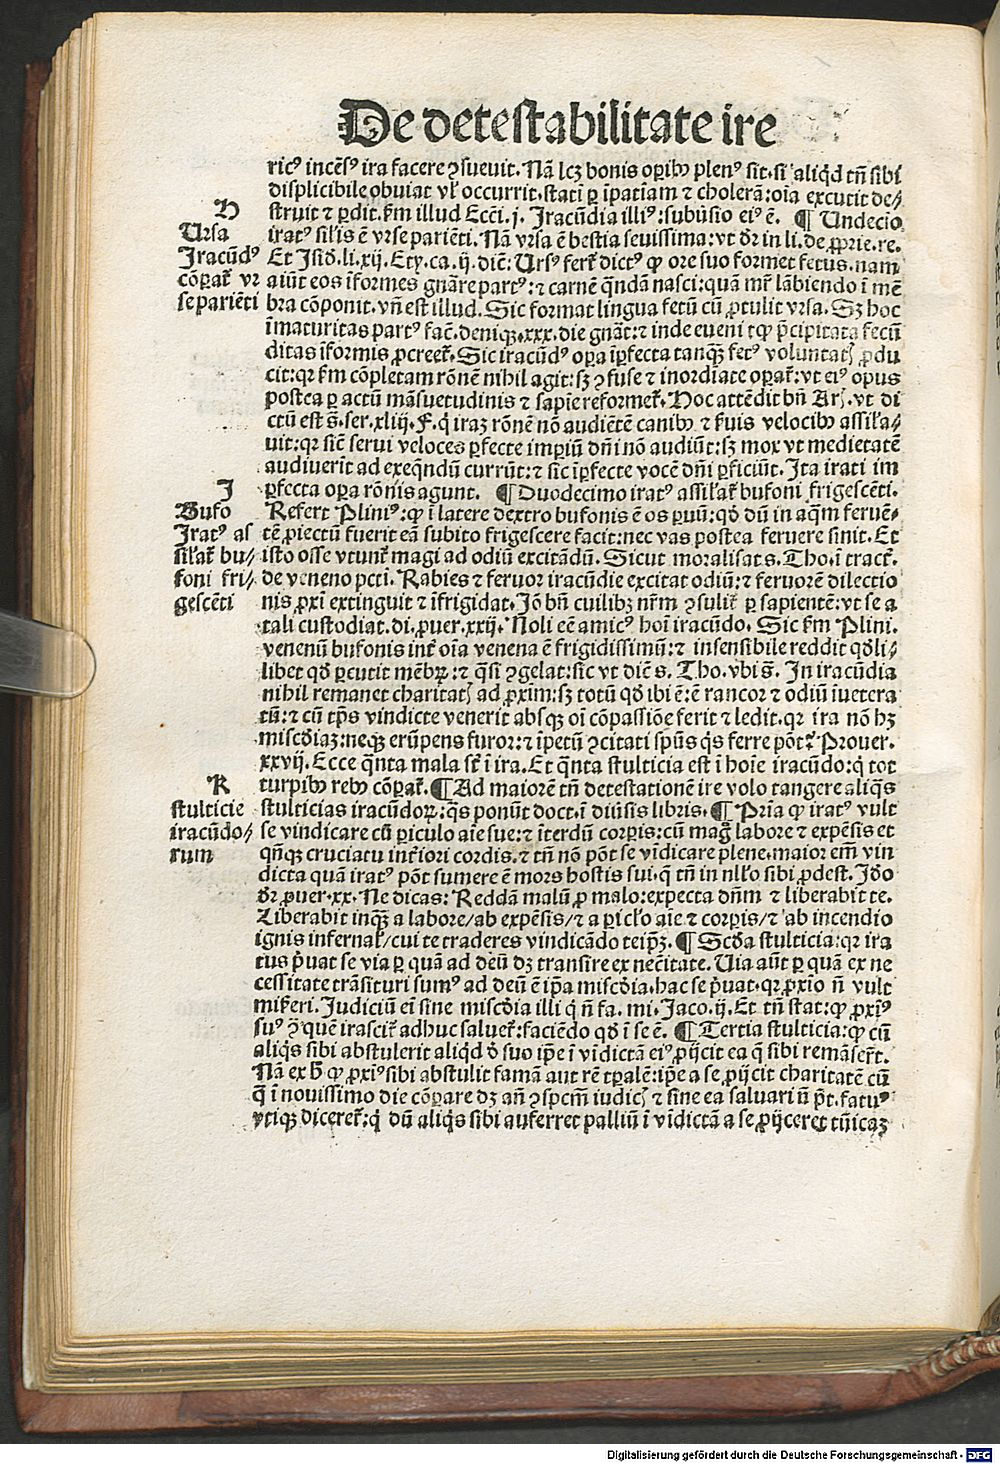 De detestabilitate ire
ricꝰ incēsꝰ ira facere ꝯsueuit. Nā lcꝫ bonis oꝑibꝰ plenꝰ sit. si aliqd tn̄ sibi
displicibile obuiat vl' occurrit. statī ꝑ īpatiam ⁊ cholerā: oīa excutit de-
struit ⁊ ꝑdit. km̄ illud Ecci. j. Iracūdia illiꝰ: subūsio eiꝰ ē. ¶ Undecīo
H
Ursa
Iracūdꝰ
cōꝑaťˢ vr
se pariēti
iratꝰ sil'is ē vrse pariēti. Nā vrsa ē bestia seuissima: vt dr̄ in li. de ꝓprie. re.
Et Isid. li. xij. Ety. ca. ij. diē: Ursꝰ fert̉ dictꝰ ꝙ ore suo formet fetus. nam
aiūt eos īformes gnāre partꝰ: ⁊ carnē qn̄dā nasci: quā mr̄ lābiendo ī mē
bra cōponit. vn̄ est illud. Sic format lingua fetū cū ꝓtulit vrsa. Sꝫ hoc
īmaturitas partꝰ fac̄. deniqꝫ. xxx. die gnāt: ⁊ inde eueni t ꝙ p̄cipitata fecū
ditas īformis ꝓcreet̉. Sic iracūdꝰ oꝑa īꝑfecta tanqꝫ fetꝰ voluntatꝭ ꝓdu
cit: qꝛ km̄ cōpletam rōnē nihil agit: sꝫ ꝯfuse ⁊ inordīate oꝑat̉: vt eiꝰ opus
postea ꝑ actū māsuetudinis ⁊ sapīe reformet̉. Hoc attēdit bn̄ Arꝭ. vt di
ctū est s̄. ser. xliij. F. q̇ iraꝫ rōnē nō audiētē canibꝰ ⁊ s̉uis velocibꝰ assil'a-
uit: qꝛ sic̄ serui veloces ꝑfecte imꝑiū dn̄i nō audiūt: sꝫ mox vt medietatē
audiuerīt ad exeqn̄dū currūt: ⁊ sic īꝑfecte vocē dn̄i ꝑficiūt. Ita irati im
ꝑfecta oꝑa rōnis agunt. ¶ Duodecimo iratꝰ assil'at̉ bufoni frigescēti.
I
Bufo
Iratꝰ as
sil'at̉ bu-
foni fri-
gescēti
Refert Pliniꝰ: ꝙ ī latere dextro bufonis ē os ꝑuū: qd̄ dū in aq̄m feruē-
tē ꝓiectū fuerit eā subito frigescere facit: nec vas postea feruere sinit. Et
isto osse vtunt̉ magi ad odiū excitādū. Sicut moralisat s. Tho. ī tract̉.
de veneno pcti. Rabies ⁊ feruor iracūdie excitat odiū: ⁊ feruorē dilectio
nis ꝓxī extinguit ⁊ īfrigidat. Iō bn̄ cuilibꝫ nr̄m ꝯsulit̉ ꝑ sapientē: vt se a
tali custodiat. di. ꝓuer. xxij. Noli eē amicꝰ hoī iracūdo. Sic km̄ Plini.
venenū bufonis int̉ oīa venena ē frigidissimū: ⁊ insensibile reddit qd̄li-
libet qd̄ ꝑcutit mēbꝝ: ⁊ q̄si ꝯgelat: sic vt diē s. Tho. vbi s̄. In iracūdia
nihil remanet charitatꝭ ad ꝓxīm: sꝫ totū qd̄ ibi ē: ē rancor ⁊ odiū īuetera
tū: ⁊ cū tp̄s vindicte venerit absqꝫ oī cōpassiōe ferit ⁊ ledit. qꝛ ira nō hꝫ
misc̄diaꝫ: neqꝫ erūpens furor: ⁊ īpetū ꝯcitati sp̄us q̇s ferre pōt? Prouer.
xxvij. Ecce q̄nta mala st̄ ī ira. Et q̄nta stulticia est ī hoīe iracūdo: q̇ tot
turpibꝰ rebꝰ cōꝑat̉. ¶ Ad maiorē tn̄ detestationē ire volo tangere aliq̄s
K
stulticie
iracūdo-
rum
stulticias iracūdoꝝ: q̄s ponūt doct. ī diūsis libris. ¶ Prīa ꝙ iratꝰ vult
se vindicare cū ꝑiculo aīe sue: ⁊ īterdū corꝑis: cū maḡ labore ⁊ expēsis et
qn̄qꝫ cruciatu int̉iori cordis. ⁊ tn̄ nō pōt se vīdicare plene. maior em̄ vin
dicta quā iratꝰ pōt sumere ē mors hostis sui. q̄ tn̄ in nll'o sibi ꝓdest. Iđo
dr̄ ꝓuer. xx. Ne dicas: Reddā malū ꝓ malo: expecta dn̄m ⁊ liberabit te.
Liberabit inqꝫ a labore/ ab expēsis/ ⁊ a ꝑicl'o aīe ⁊ corꝑis/ ⁊ ab incendio
ignis infernal'/ cui te traderes vindicādo teip̄ꝫ. ¶ Sc̄da stulticia: qꝛ ira
tus p̄uat se via ꝑ quā ad deū dꝫ transire ex nec̄itate. Uia aūt ꝑ quā ex ne
cessitate trāsituri sumꝰ ad deū ē ip̄a misc̄dia. hac se p̄uat. qꝛ ꝓxīo n̄ vult
mis̉eri. Iudiciū ei sine misc̄dia illi q̇ n̄ fa. mi. Jaco. ij. Et tn̄ stat: ꝙ ꝓxīꝰ
suꝰ ꝯ̄ quē irascit̉ adhuc saluet̉: faciēdo qd̄ ī se ē. ¶ Tertia stulticia: ꝙ cū
aliq̇s sibi abstulerit aliqd̄ d̄ suo ip̄e ī vīdictā eiꝰ ꝓijcit ea q̄ sibi remāser̄t.
Nā ex h̄ ꝙ ꝓxīꝰ sibi abstulit famā aut rē tꝑalē: ip̄e a se ꝓijcit charitatē cū
q̄ ī nouissimo die cōꝑare dꝫ añ ꝯspcm̄ iudicꝭ ⁊ sine ea saluari n̄ p̄t. fatuꝰ
vtiqꝫ diceret̉: q̇ dū aliq̇s sibi auferret palliū ī vīdictā a se ꝓijceret tūicaꝫ
Digitalisierung gefördert durch die Deutsche Forschungsgemeinschaft - DFG